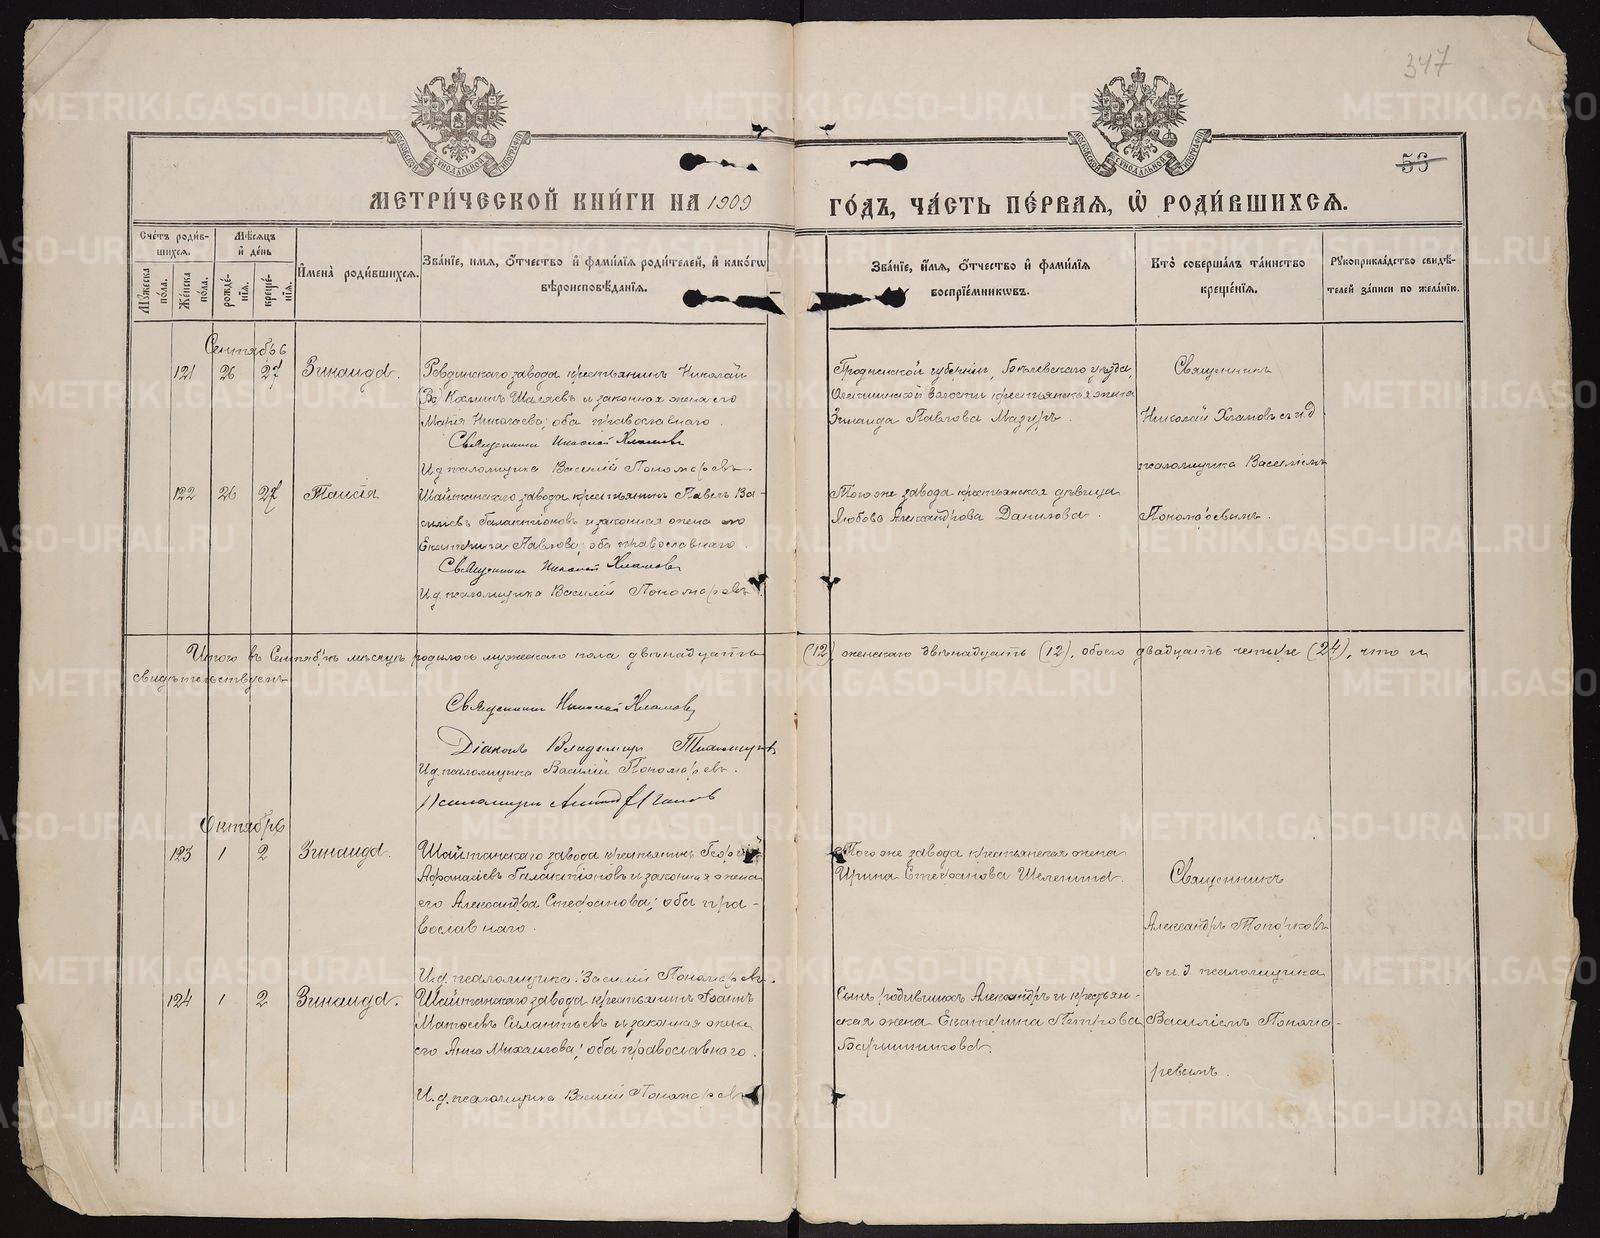 347
56
МЕТРИ́ЧЕСКОЙ КНИ́ГИ НА 1909 ГО́ДЪ, ЧА́СТЬ ПЕ́РВАЯ, Ѽ РОДИ́ВШИХСЯ.
Сче́тъ роди́в-
шихся.
Мѣ́сяцъ
и҆ де́нь
Мꙋ́жеска по́ла.
Же́нска по́ла.
рожде́-
нїя.
креще́-
нїя.
И҆мена̀ роди́вшихся.
Зва́нїе, и҆мя, ѻ҆́тчество и҆ фами́лїя роди́телей, и҆ како́гѡ
вѣроисповѣ́данїя.
Зва́нїе, и҆́мя, ѻ҆́тчество и҆ фами́лїя
воспрїе́мникѡвъ.
Кто̀ соверша́лъ та́инство
креще́нїя.
Рꙋкоприкла́дство свидѣ́-
телей за́писи по жела́нїю.
Сентябрь
121 26 27 Зинаида.
Ревдинскаго завода крестьянинъ Николай
Козминъ Шаляевъ и законная жена его
Марія Николаева; оба православнаго.
Священникъ Николай Хламовъ
И.д. псаломщика Василій Пономаревъ.
Гродненской губерніи, Бѣльского уѣзда,
волости крестьянская жена
Зинаида Павлова Мазуръ.
Священникъ
Николай Хламовъ съ и.д.
псаломщика Василіемъ
Пономаревымъ.
122 26 27 Таисія
Шайтанскаго завода крестьянинъ Павелъ Ва-
сильевъ Галактіоновъ и законная жена его
Екатерина Павлова; оба православнаго.
Священникъ Николай Хламовъ
И.д. псаломщика Василій Пономаревъ.
Того же завода крестьянская дѣвица
Любовь Александрова Данилова.
Итого въ Сентябрѣ мѣсяцѣ родилось мужескаго пола двѣнадцать (12), женскаго двѣнадцать (12), обоего двадцать четыре (24), что и
свидѣтельствуемъ
Священникъ Николай Хламовъ
Діаконъ Владимиръ
И.д. псаломщика Василій Пономаревъ.
Псаломщикъ
Октябрь
123 1 2 Зинаида.
Шайтанскаго завода крестьянинъ Георгій
Афанасіевъ Галактіоновъ и законная жена
его Александра Стефанова; оба пра-
вославнаго.
И.д. псаломщика Василій Пономаревъ.
Того же завода крестьянская жена
Ирина Стефанова Шелепина.
Священникъ
Александръ Топорковъ
съ и.д. псаломщика
Василіемъ Понома-
ревымъ.
124 1 2 Зинаида.
Шайтанскаго завода крестьянинъ Іоаннъ
Матѳеевъ Силантьевъ и законная жена
его Анна Михаилова; оба православнаго.
И.д. псаломщика Василій Пономаревъ
Сынъ родившихъ Александръ и крестьян-
ская жена Екатерина Петрова
Барышникова.
METRIKI.GASO-URAL.RU